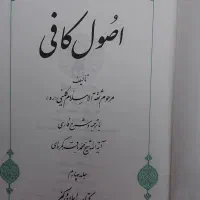 اصول کافی
تألیف
مرحوم ثقة الاسلام کلینی (ره)
با ترجمه و شرح فارسی
آیة الله شیخ محمد باقر کمره‌ای
جلد چهارم